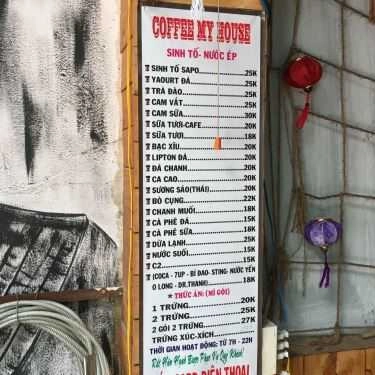 COFFEE MY HOUSE
SINH TỐ - NƯỚC ÉP
SINH TỐ SAPO..........25K
YAOURT ĐÁ..........25K
TRÀ ĐÀO..........25K
CAM VẮT..........25K
CAM SỮA..........30K
SỮA TƯƠI-CAFE..........20K
SỮA TƯƠI..........18K
BẠC XỈU..........20K
LIPTON ĐÁ..........20K
ĐÁ CHANH..........20K
CA CAO..........20K
SƯƠNG SÁO(THÁI)..........20K
BÒ CỤNG..........22K
CHANH MUỐI..........18K
CÀ PHÊ ĐÁ..........15K
CÀ PHÊ SỮA..........18K
DỪA LẠNH..........25K
NƯỚC SUỐI..........15K
C2..........15K
(COCA - 7UP - BÍ ĐAO- STING- NƯỚC YẾN
O LONG - DR.THANH)..........18K
* THỨC ĂN: (MÌ GÓI)
1 TRỨNG..........20K
2 TRỨNG..........25K
2 GÓI 2 TRỨNG..........
TRỨNG XÚC-XÍCH..........27K
THỜI GIAN HOẠT ĐỘNG: TỪ 7H - 22H
Rất Hân Hạnh Được Phục Vụ Quý Khách!
ĐIỆN THOẠI